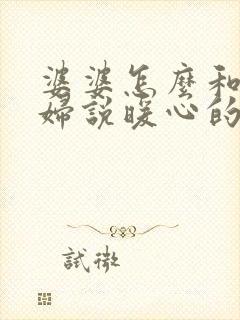 婆婆怎麼和
婦說暖心的
試微